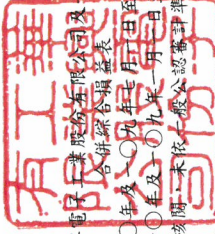 電子工業股份有限公司及
合併綜合損益表
○年及一○九年七月一日至
○年及一○九年一月一日
核閱，未依一般公認審計準